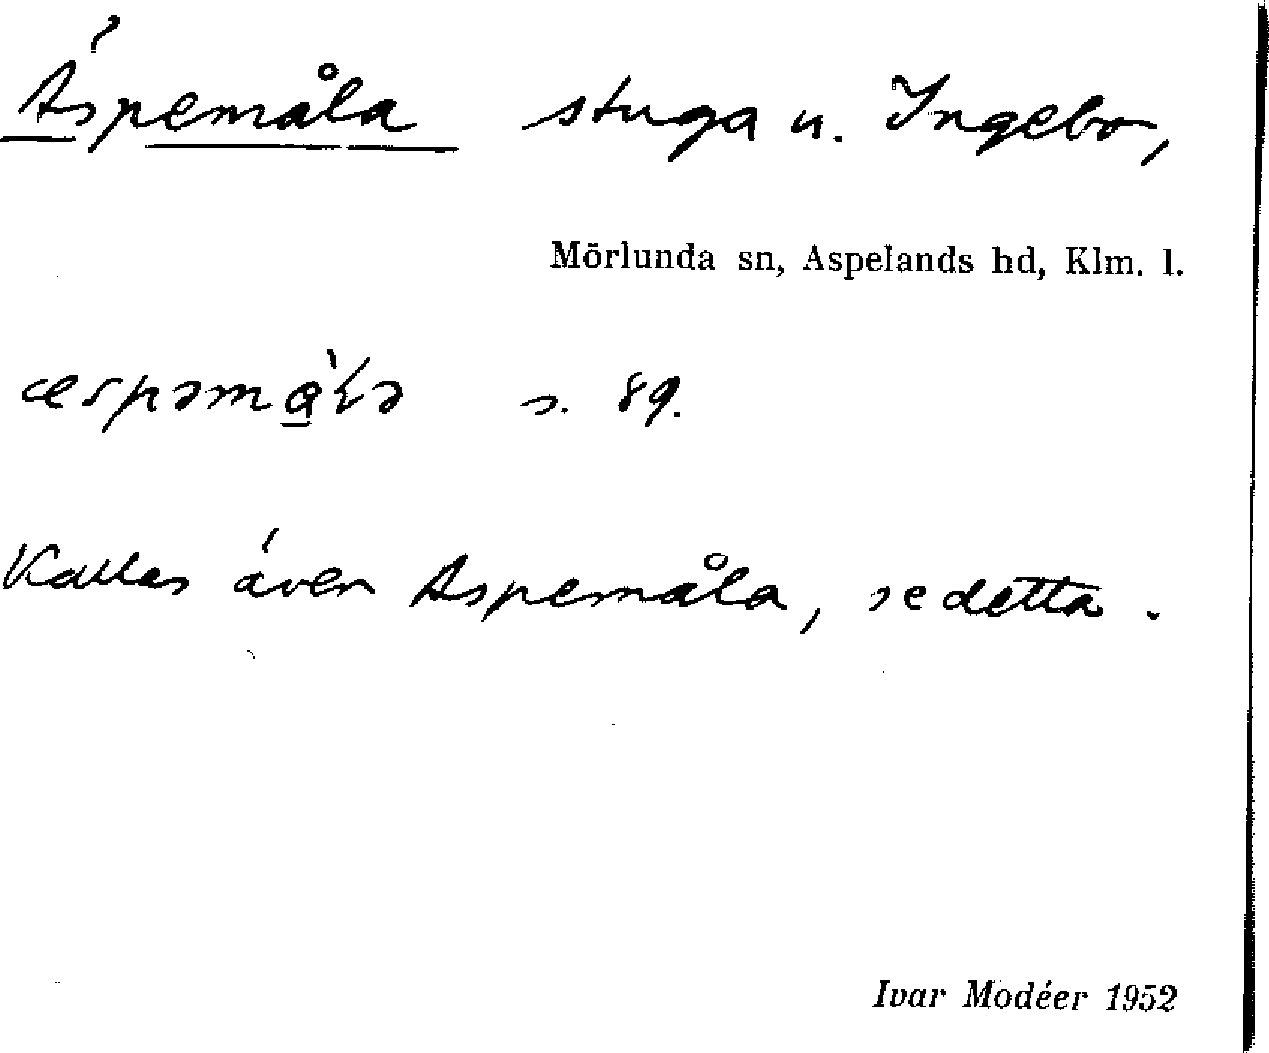 Äspemåla stuga u. Ingebo,
Mörlunda sn, Aspelands hd, Klm. l.
æspəmɑ̀lə s. 89.
Kallas även Aspemåla, se detta.
Ivar Modéer 1952